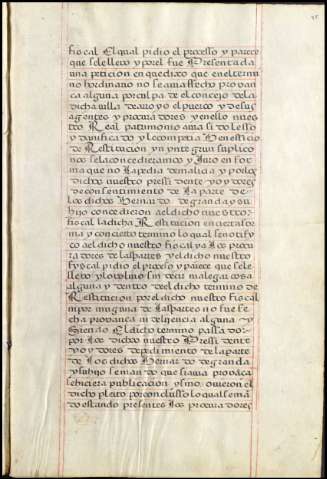 fiscal El qual pidio el processo y parece
que selelleuo y por el fue Presentada
una peticion en que dixo que en el termi
no hordinario no se auia fecho prouan
ça alguna por culpa de el concejo de la
dicha villa de aroyo el puerco y de sus
agentes y procuradores y en ello nues
tro Real patrimonio auia sido lesso
y danificado y le competia Beneficio
de Restitucion yn yntegrun suplico
nos se la concedieramos y Juro en for
ma que no La pedia de malicia y por los
dichos nuestro pressidente y oydores
de consentimiento de La parte de
Los dichos Bernardo de granda y su
hijo concedieron al dicho nuestro fis
cal la dicha Restitucion en cierta for
ma y con cierto termino lo qual se notifi
co al dicho nuestro fiscal y a Los procu
radores de las partes y el dicho nuestro
fiscal pidio el processo y parece que se le
lleuo y lo boluio sin decir ni alegar cosa
alguna y dentro del dicho termino de
Restitucion por el dicho nuestro fiscal
ni por ninguna de Las partes no fue fe
cha prouança ni deligencia alguna y
Siendo El dicho termino passado
por Los dichos nuestro Pressidente
y oydores de pedimiento de La parte
de Los dichos Bernardo de granda
y su hijo se mando que si auia prouança
se hiciera publicacion y sino ouieron el
dicho pleito por concluso lo qual se man
do estando presentes Los procuradores